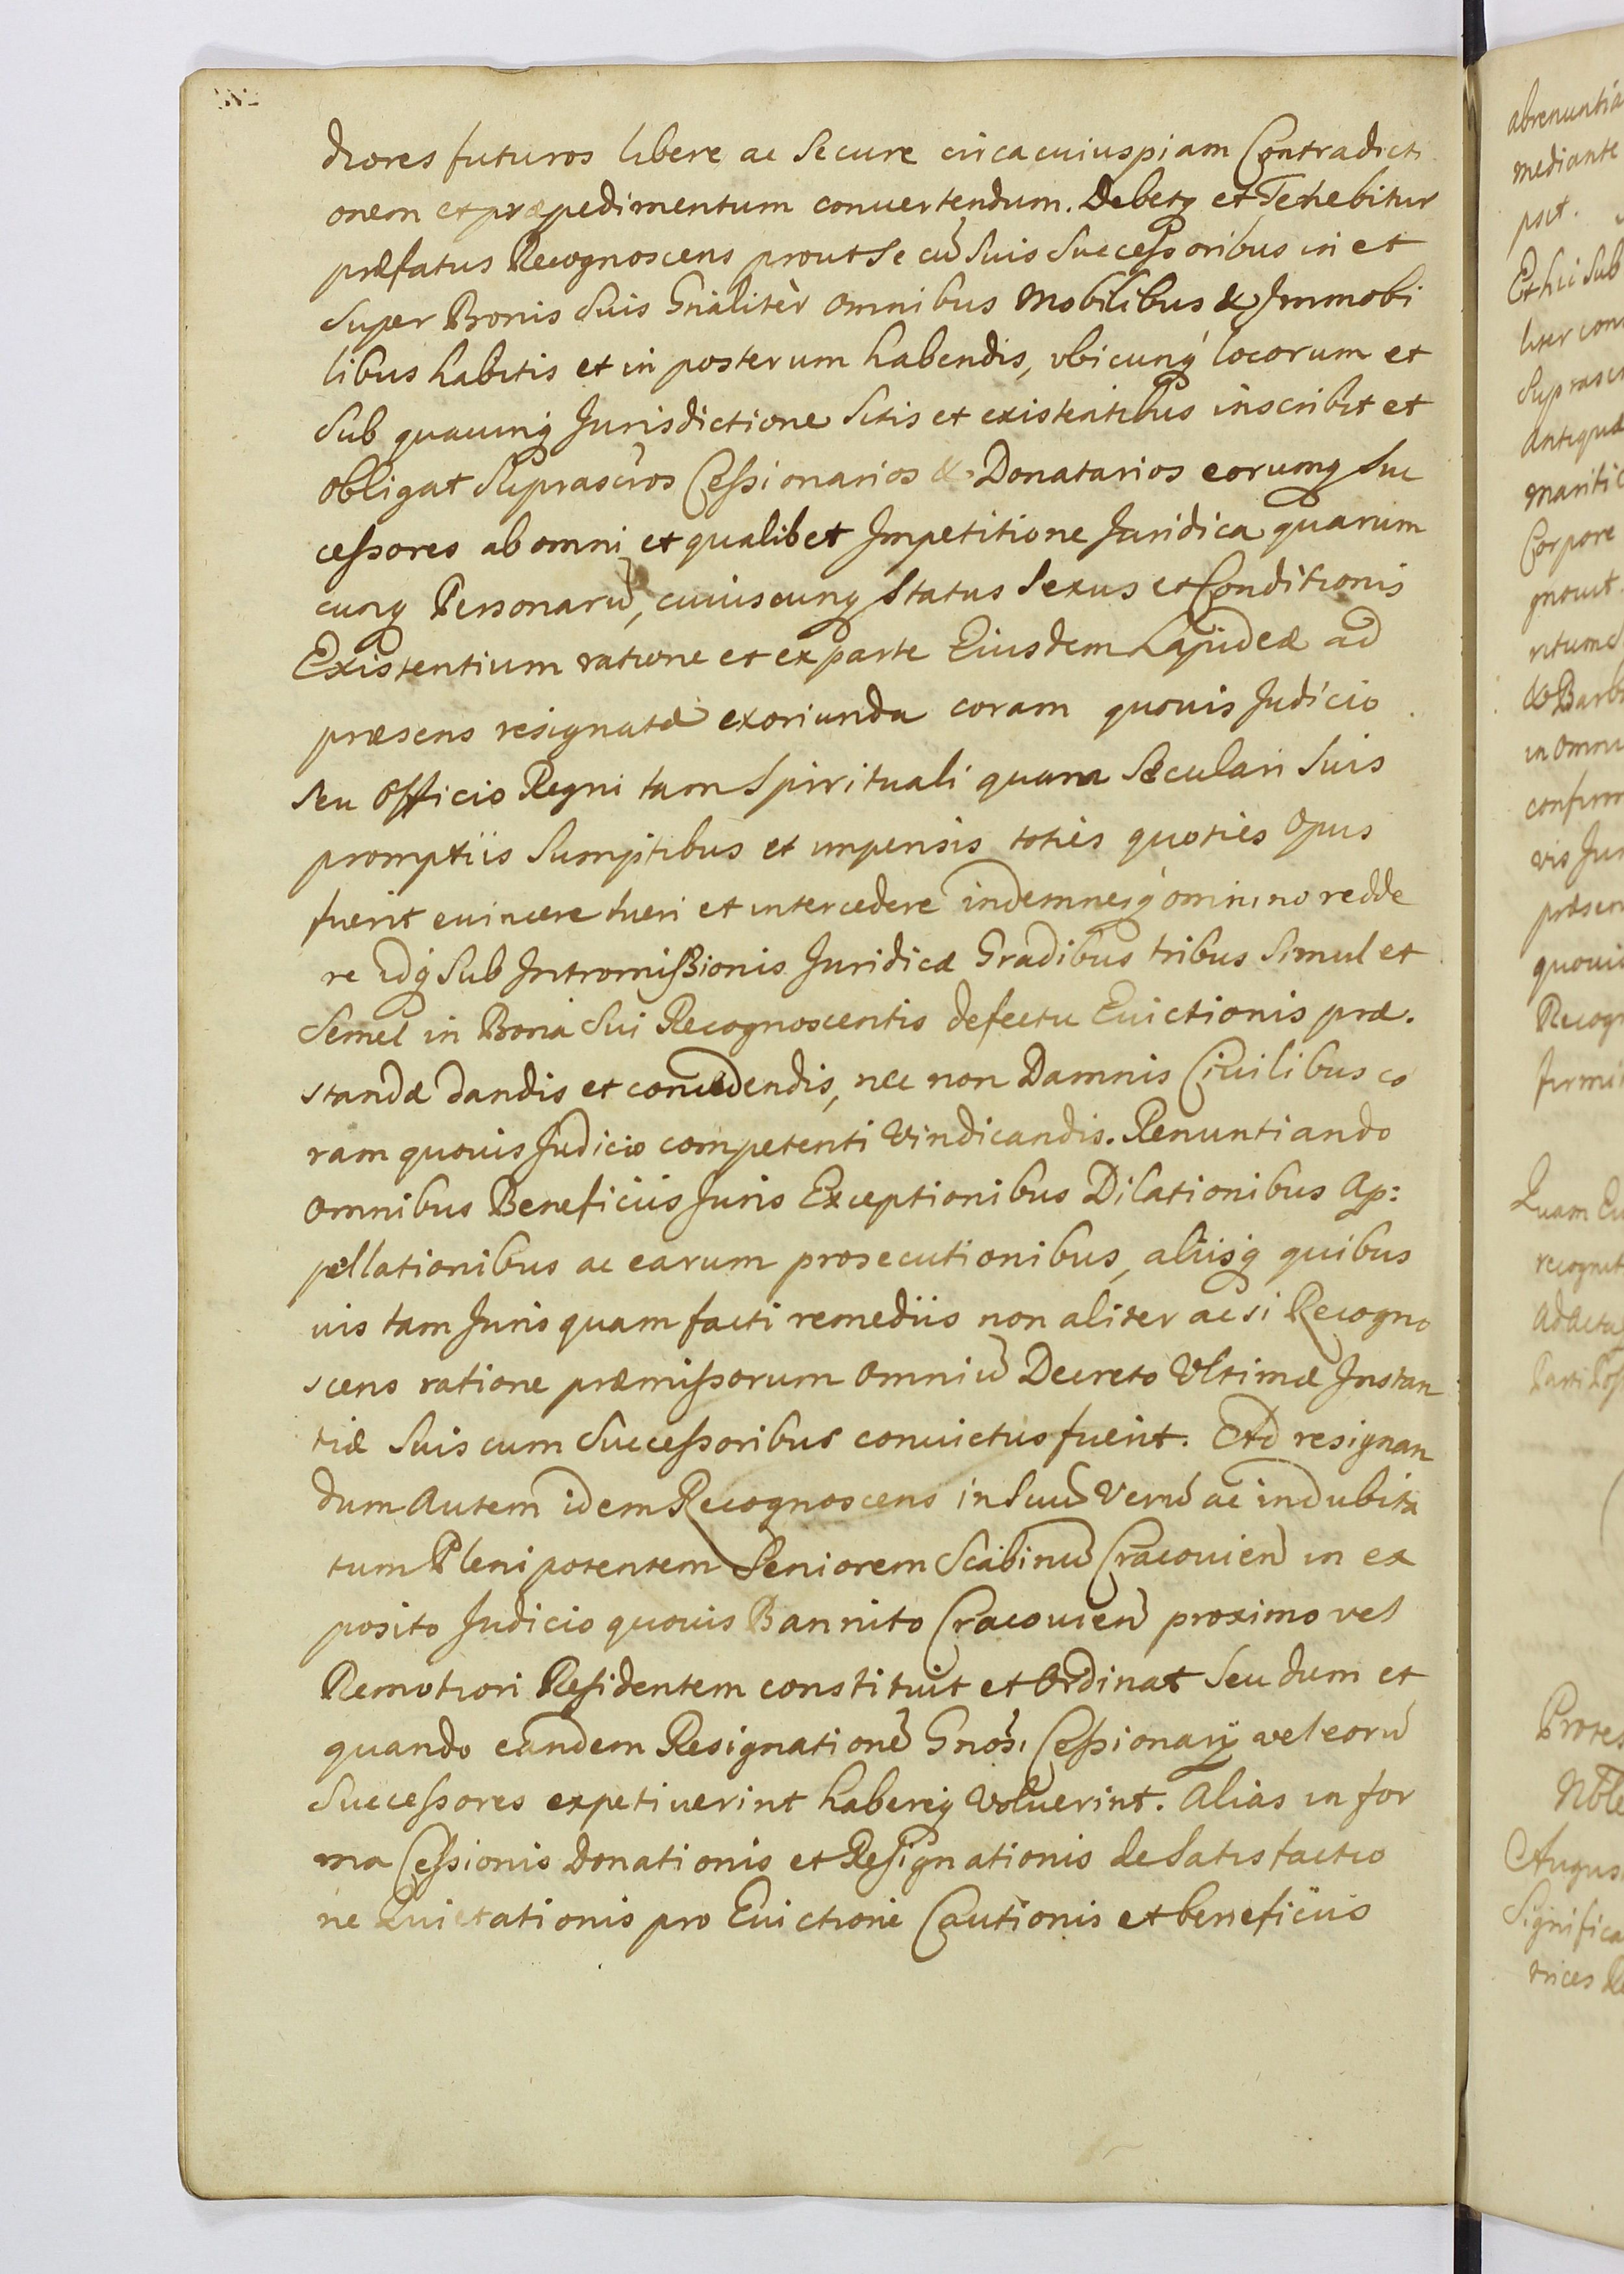 diores futuros libere ac Secure circa cuiuspiam Contradicti
onem et præpedimentum conuertendum. Debetq et Tenebitur
præfatus Recognoscens prout Se cũ Suis Successoribus in et
Super Bonis Suis Gnaliter omnibus Mobilibus & Immobi
libus habitis et in posterum habendis, vbicunq locorum et
Sub quacunq Jurisdictione Sitis et existentibus inscribit et
obligat Suprascros Cessionarios & Donatarios eorumq Suc
cessores ab omni et qualibet Impetitione Juridica quarum
cunq Personarũ, cuiuscunq Status Sexus et Conditionis
Existentium ratione et ex parte Eiusdem Lapideæ ad
præsens resignatæ exoriunda coram quouis Judicio
seu Officio Regni tam Spirituali quam Sæculari Suis
promptiis Sumptibus et impensis toties quoties Opus
fuerit euincere tueri et intercedere indemnesq omnino redde
re idq Sub Intromissionis Juridicæ Gradibus tribus Simul et
Semel in Bona Sui Recognoscentis defectu Euictionis præ.
standæ dandis et concedendis, nec non Damnis Ciuilibus co
ram quouis Judicio competenti Vindicandis. Renuntiando
Omnibus Beneficiis Juris Exceptionibus Dilationibus Ap:
pellationibus ac earum prosecutionibus, aliisq quibus
uis tam Juris quam facti remediis non aliter ac si Recogno
scens ratione præmissorum omniũ Decreto Vltimæ Instan
tiæ Suis cum Successoribus conuictus fuerit. Ad resignan
dum Autem idem Recognoscens in Suũ Verũ ac indubita
tum Plenipotentem Seniorem Scabinũ Cracouien in ex
posito Judicio quouis Bannito Cracouien proximo vel
Remotiori Residentem constituit et Ordinat Seu dum et
quando eandem Resignationẽ Gnosi Cessionarij vel eorũ
Successores expetiuerint habereq Voluerint. Alias in for
ma Cessionis Donationis et Resignationis de Satisfactio
ne Quietationis pro Euictione Cautionis et beneficiis
abrenuntia
mediante
psit.
Et hic Sub
liter con
Suprasc
Antiquæ
mariti
Corpore
gnouit.
& Barb
in omni
confirm
vis Jur
præsen
quouis
Recogn
firmi
Quam Eu
recognit
Ad Acta
Protes
Noble
August
Significa
trices Re